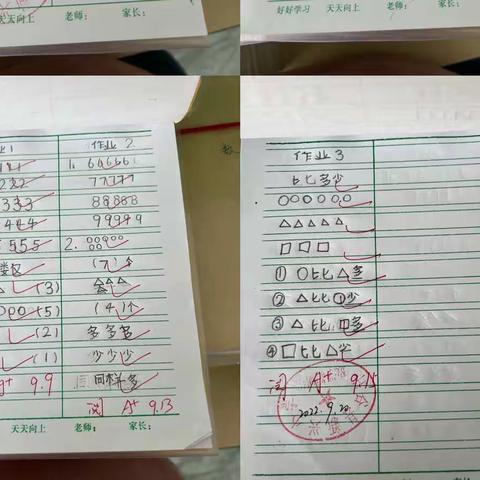 天天向上 老师： 家长：
好好学习 天天向上 老师： 家长：
作业2
1. 66666
77777
88888
99999
2.
(7)个
(4)个
多多多
少少少
同样多
阅 A+ 9.13
333
444
555
(3)
(5)
(2)
(1)
A+ 9.9
天天向上 老师： 家长：
作业3
比多少
○○○○○○
△△△△△
□□□
① ○比△多
② △比○少
③ △比□多
④ □比△少
阅 A+ 9.15
2022.9.20
好好学习 天天向上 老师： 家长：